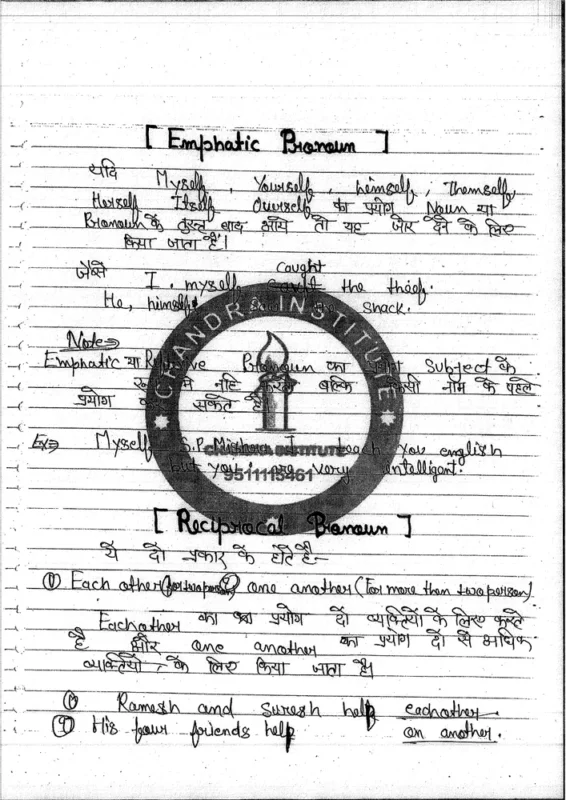 [ Emphatic Pronoun ]
यदि Myself, Yourself, himself, Themself,
Herself Itself Ourself का प्रयोग Noun या
Pronoun के तुरन्त बाद आये तो यह जोर देने के लिए
किया जाता है।
जैसे
caught
I, myself caught the thief.
He, himself the snack.
Note⇒
Emphatic या Reflexive Pronoun का Subject के
में नहि करते बल्कि किसी नाम के पहले
प्रयोग सकते है
Ex⇒ Myself S.P. Mishra I teach you english
but you are very intelligent.
CHANDRA INSTITUTE
CHANDRA INSTITUTE
9511115461
[ Reciprocal Pronoun ]
ये दो प्रकार के होते है:-
① Each other (for two person) ② one another (For more than two person)
Eachother का प्रयोग दो व्यक्तियों के लिए करते
है और one another का प्रयोग दो से अधिक
व्यक्तियों के लिए किया जाता है।
① Ramesh and Suresh help eachother.
② His four friends help on another.